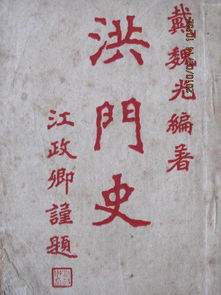 戴魏光編著
洪門史
江政卿謹題